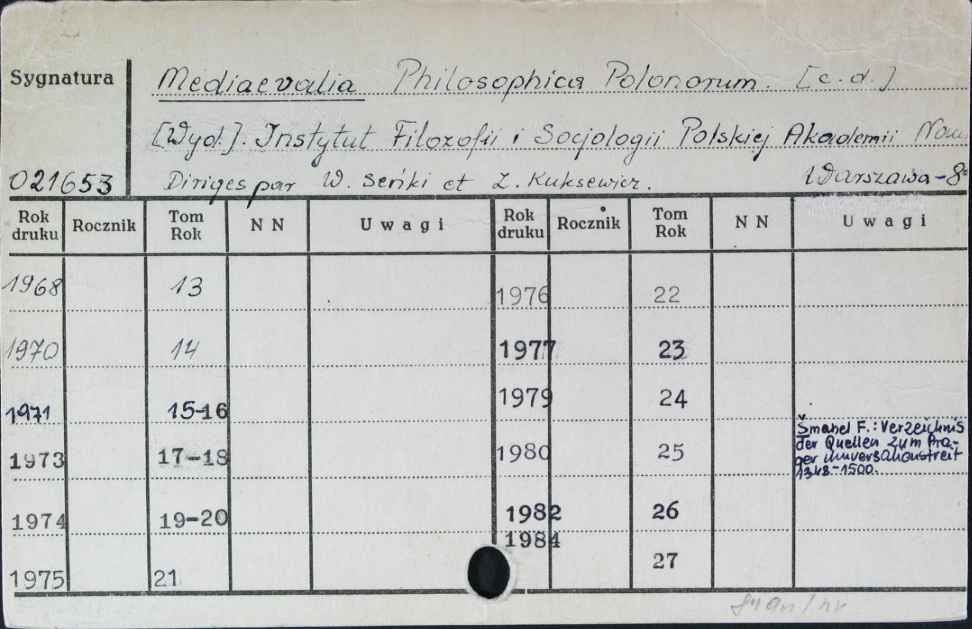 Sygnatura
Mediaevalia Philosophica Polonorum. [c.d.]
[Wyd.]. Instytut Filozofii i Socjologii Polskiej Akademii Nauk
021653 Diriges par W. Seńki et Z. Kuksewicz. Warszawa - 8°
Rok druku Rocznik Tom Rok NN Uwagi Rok druku Rocznik Tom Rok NN Uwagi
1968 13 1976 22
1970 14 1977 23
1971 15-16 1979 24
1973 17-18 1980 25 Šmahel F.: Verzeichnis
der Quellen zum Pra-
ger Universalienstreit
1348-1500.
1974 19-20 1982 26
1984
1975 21 27